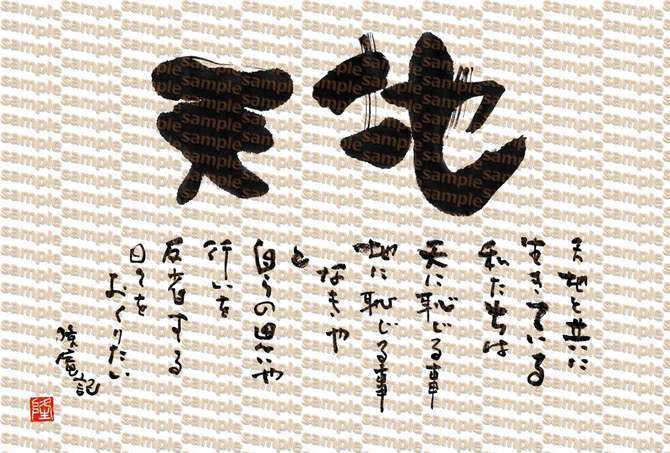 天地
天地と共に
生きている
私たちは
天に恥じる事
地に恥じる事
なきや
と
自らの思いや
行いを
反省する
日々を
おくりたい
記
隆
sample